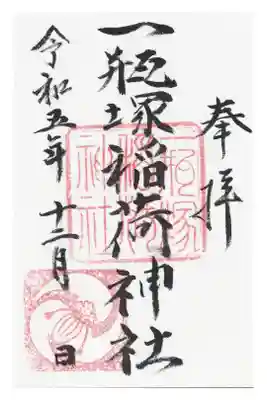 奉拝
一瓶塚稲荷神社
令和五年十二月 日